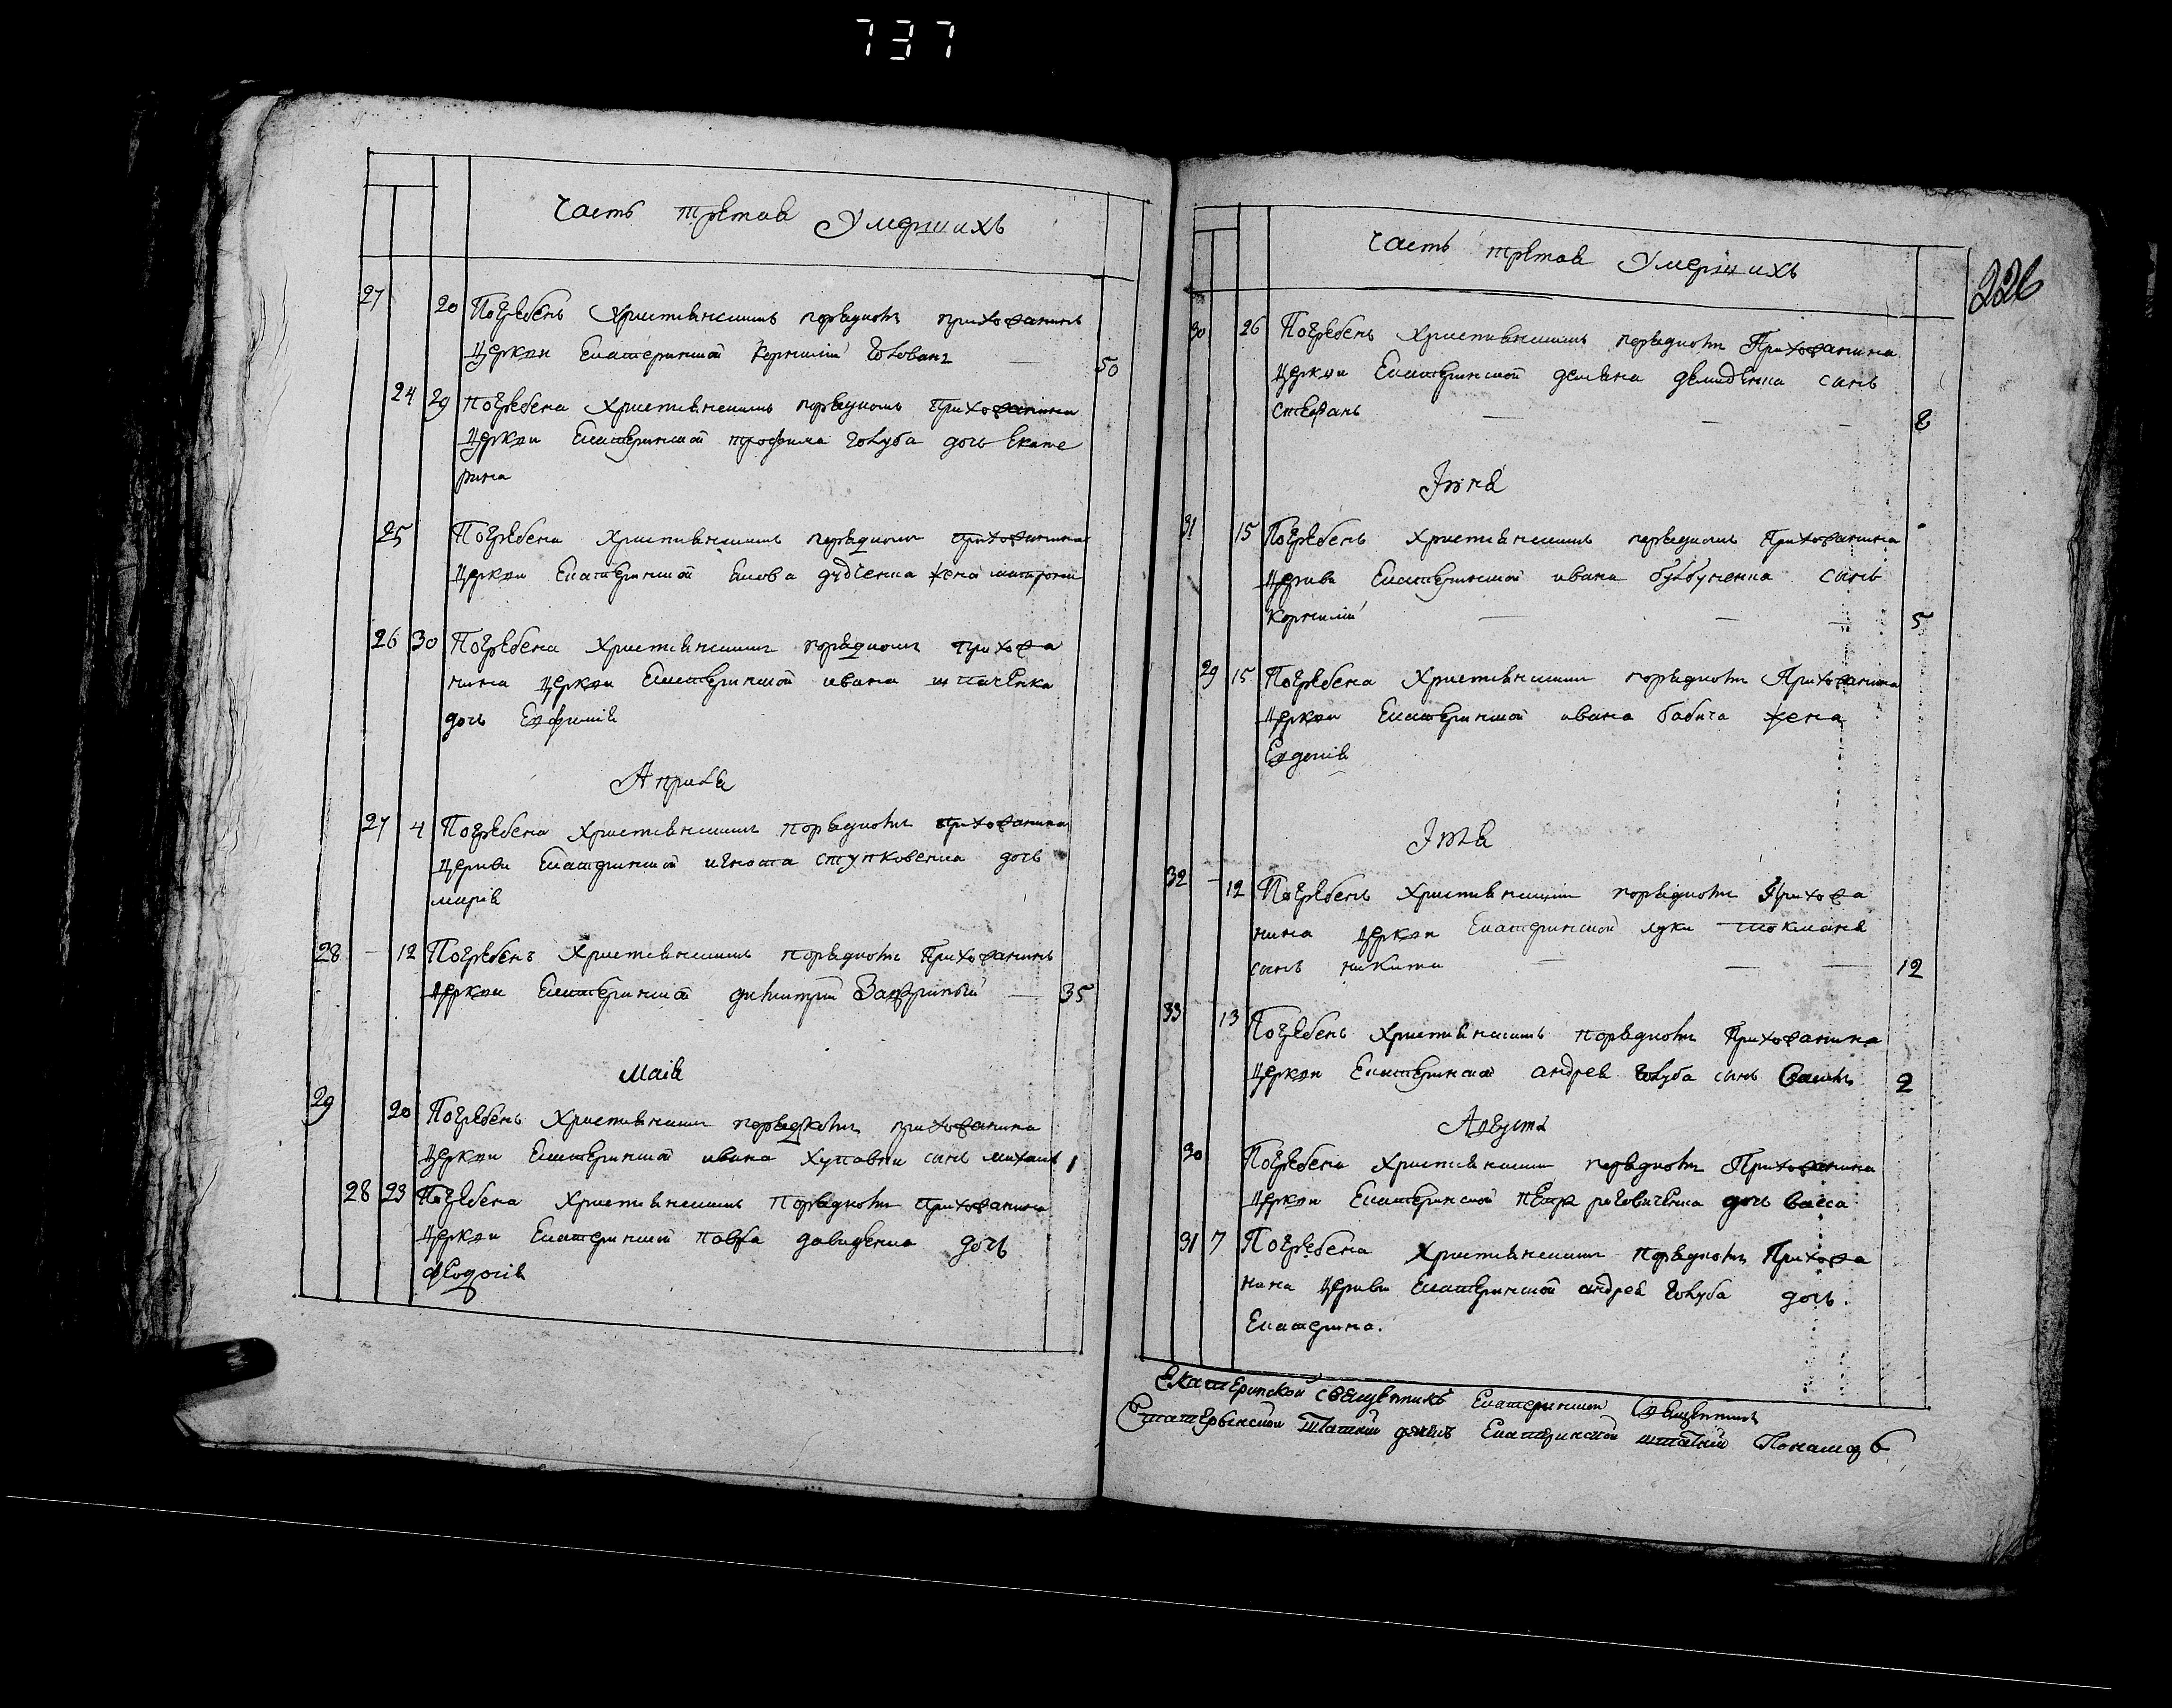 737
Часть третая Умершихъ
27 20 Погребенъ Християнскимъ порядкомъ прихожанинъ
Церкви Екатеринской Корнилий Голованъ — 50
24 29 Погребена Християнскимъ порядкомъ Прихожанина
Церкви Екатеринской трофима голуба дочь Екате
рина
25 Погребена Християнскимъ порядкомъ прихожанина
Церкви Екатеринской якова дудченка жена матрона
26 30 Погребена Християнскимъ порядкомъ прихожа
нина церкви Екатеринской ивана
дочь Евфимия
Априля
27 4 Погребена Християнскимъ порядкомъ прихожанина
Церкви Екатеринской игната ступковенка дочь
мария
28 - 12 Погребенъ Християнскимъ порядкомъ Прихожанинъ
Церкви Екатеринской димитрий — 35
Маия
29 20 Погребенъ Християнскимъ порядкомъ прихожанина
Церкви Екатеринской ивана синъ михаилъ 1
28 23 Погребена Християнскимъ порядкомъ Прихожанина
Церкви Екатеринской павла давиденка дочь
феодосия
226
Часть третая Умершихъ
30 26 Погребенъ Християнскимъ порядкомъ Прихожанина
Церкви Екатеринской демяна демиденка синъ
стефанъ — — — 8
Июня
31 15 Погребенъ Християнскимъ порядкомъ Прихожанина
Церкви Екатеринской ивана булбученка синъ
Корнилий — — — 5
29 15 Погребена Християнскимъ порядкомъ Прихожанина
Церкви Екатеринской ивана бабича жена
Евдокия
Июля
32 - 12 Погребенъ Християнскимъ порядкомъ Прихожа
нина церкви Екатеринской луки токманя
синъ никита — — — 12
33 13 Погребенъ Християнскимъ порядкомъ Прихожанина
Церкви Екатеринской андрея голуба синъ 2
Августа
30 Погребена Християнскимъ порядкомъ Прихожанина
Церкви Екатеринской дочь васса
31 7 Погребена Християнскимъ порядкомъ Прихожа
нина Церкви Екатеринской андрея голуба дочь
Екатерина.
Екатеринской священникъ Екатеринской Священникъ
Екатеринской Екатеринской штатний Понамаръ